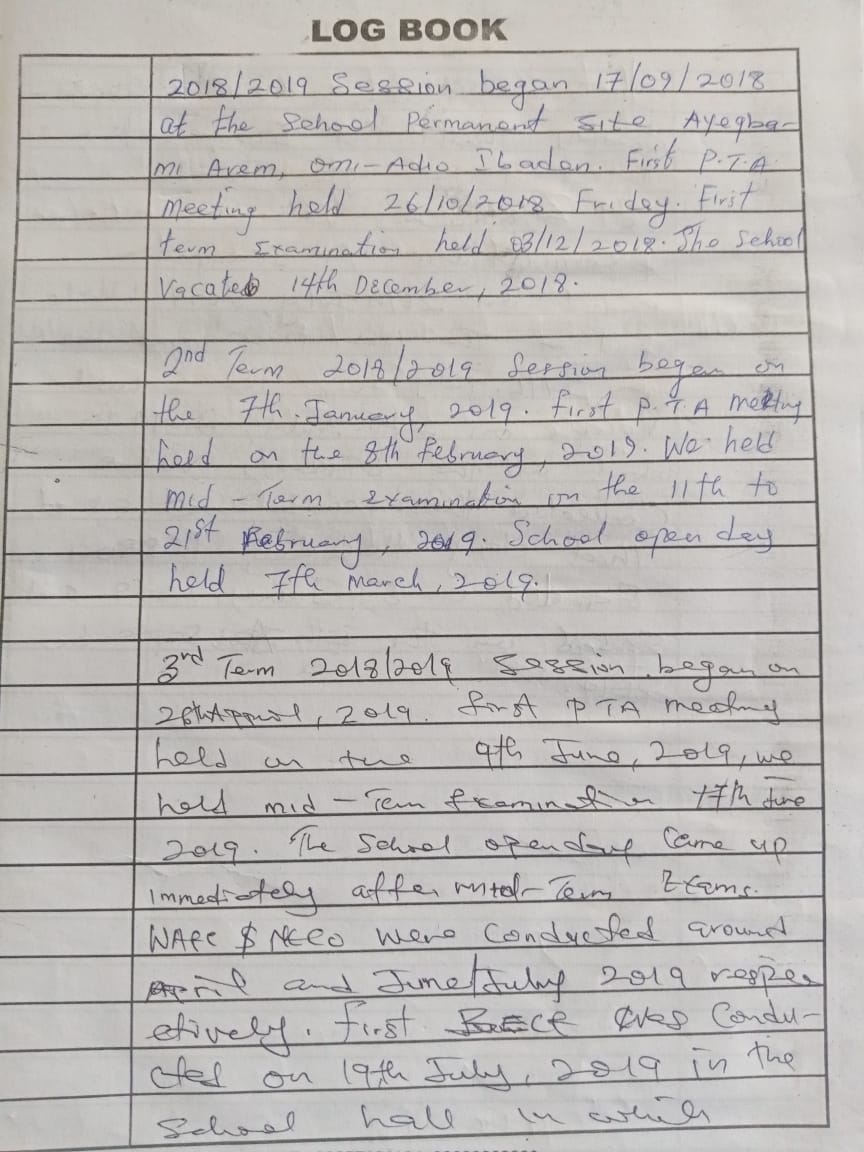 LOG BOOK
2018/2019 Session began 17/09/2018
at the School Permanent Site Ayegba-
mi Arem, Omi-Adio Ibadan. First P.T.A
Meeting held 26/10/2018 Friday. First
term Examination held 03/12/2018. The School
Vacated 14th December, 2018.
2nd Term 2018/2019 Session began on
the 7th January, 2019. first P.T.A meeting
held on the 8th february, 2019. We held
mid-Term examination on the 11th to
21st February, 2019. School open day
held 7th march, 2019.
3rd Term 2018/2019 Session began on
2019. first PTA meeting
held on the 9th June, 2019, we
held mid-Term Examination 17th June
2019. The School openday came up
immediately after mid-Term Exams.
WAEC $ NECO were conducted around
April and June/July 2019 respe
ctively. first was Condu-
cted on 19th July, 2019 in the
School hall in which